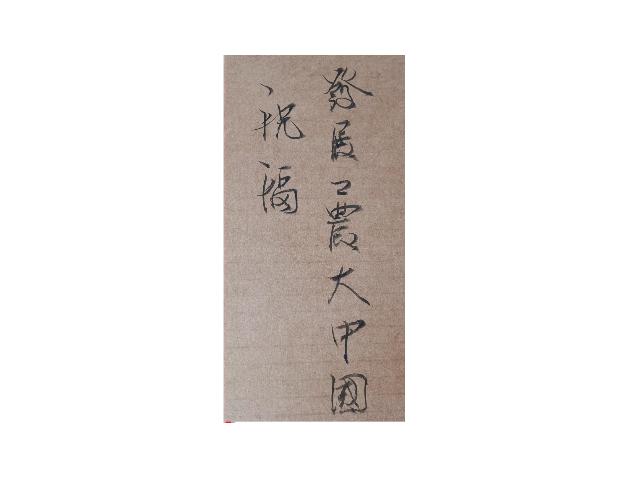 發展工農大中國
祝福